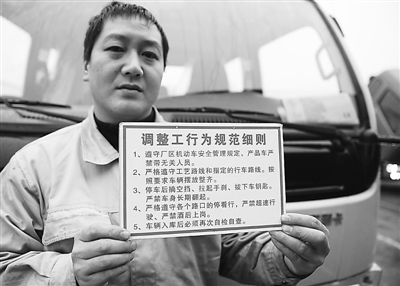 调整工行为规范细则
1、遵守厂区机动车安全管理规定，产品车严
禁带无关人员。
2、严格遵守工艺路线和指定的行车路线，按
照要求车辆摆放整齐。
3、停车后摘空挡、拉起手刹、拔下车钥匙，
严禁车身长期翻起。
4、严格遵守各个路口的停看行，严禁超速行
驶、严禁酒后上岗。
5、车辆入库后必须再次自检自查。